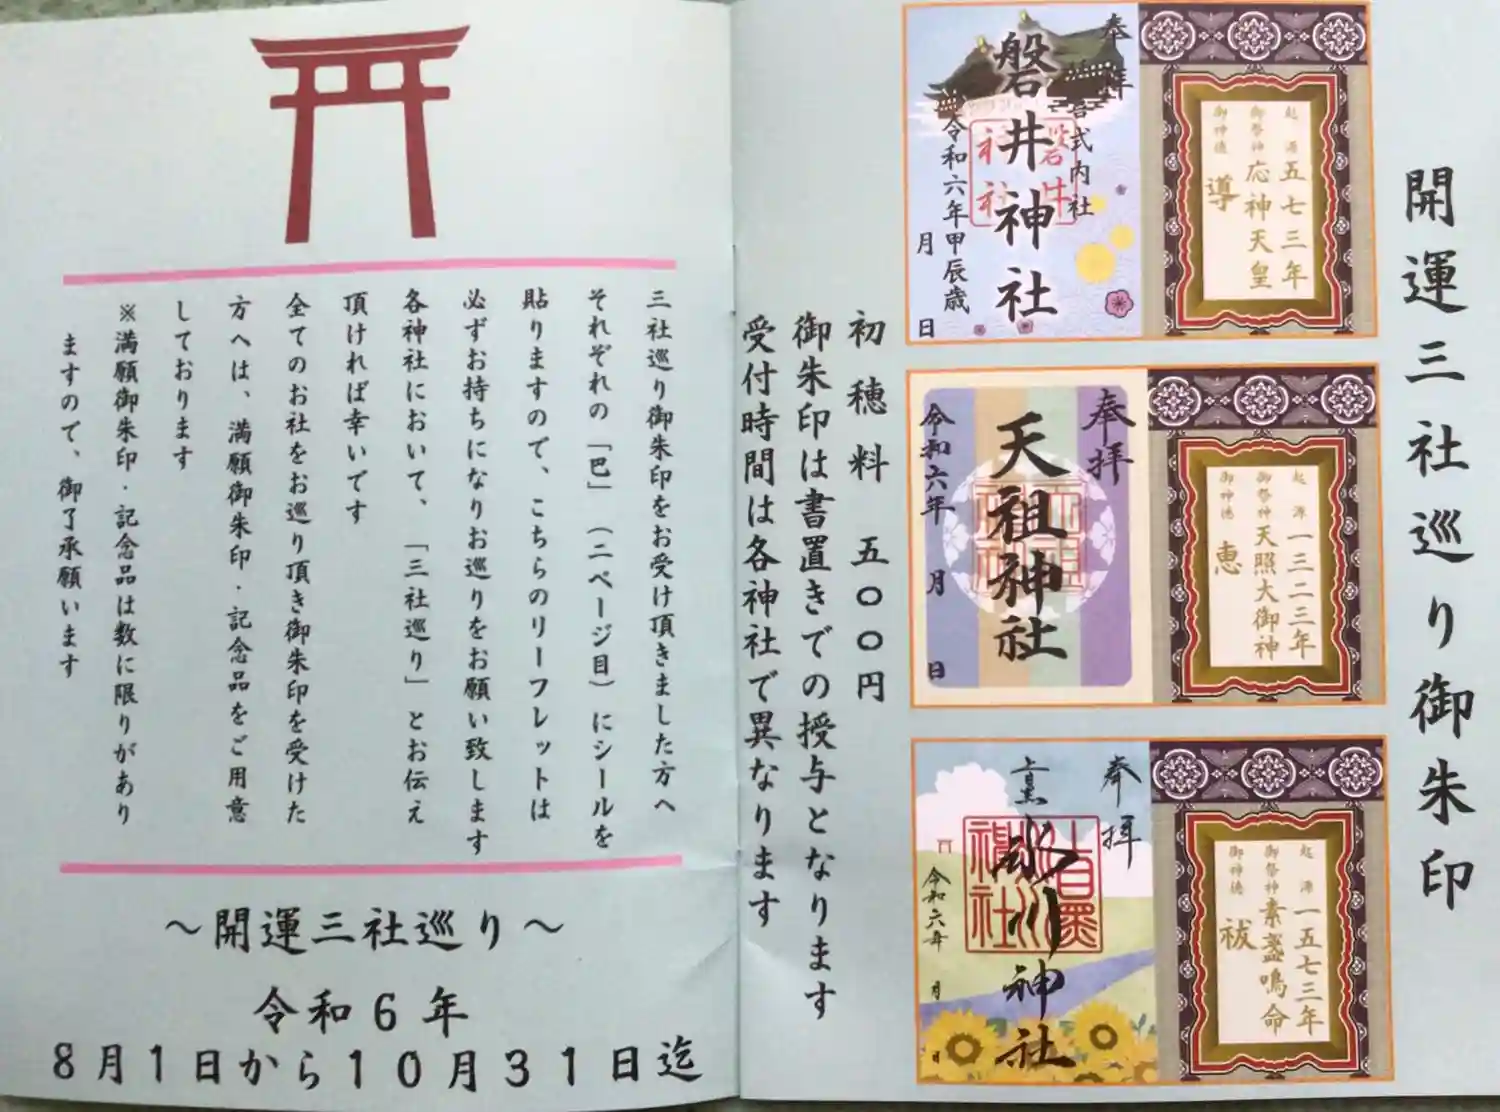 開運三社巡り御朱印
起源 五七三年
御祭神 応神天皇
御神徳 導
奉拝
式内社
磐井神社
磐井
神社
令和六年甲辰歳
月 日
起源 一三二三年
御祭神 天照大御神
御神徳 恵
奉拝
天祖神社
天祖
神社
令和六年 月 日
起源 一五七三年
御祭神 素盞嗚命
御神徳 祓
奉拝
氷川神社
神社
令和六年 月 日
初穂料 五〇〇円
御朱印は書置きでの授与となります
受付時間は各神社で異なります
三社巡り御朱印をお受け頂きました方へ
それぞれの「巴」(二ページ目)にシールを
貼りますので、こちらのリーフレットは
必ずお持ちになりお巡りをお願い致します
各神社において、「三社巡り」とお伝え
頂ければ幸いです
全てのお社をお巡り頂き御朱印を受けた
方へは、満願御朱印・記念品をご用意
しております
※満願御朱印・記念品は数に限りがあり
ますので、御了承願います
～開運三社巡り～
令和6年
8月1日から10月31日迄